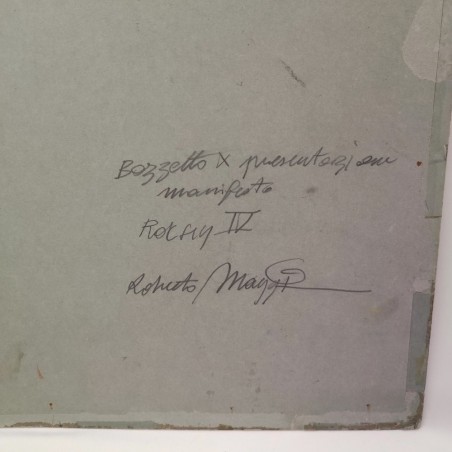 Bozzetto x presentazione
manifesto
Rocky IV
Roberto Maggi